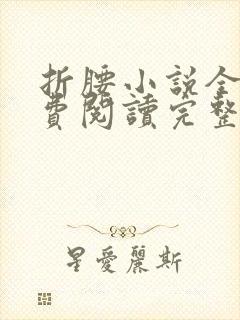 折腰小説全
費閱讀完整
星愛麗斯